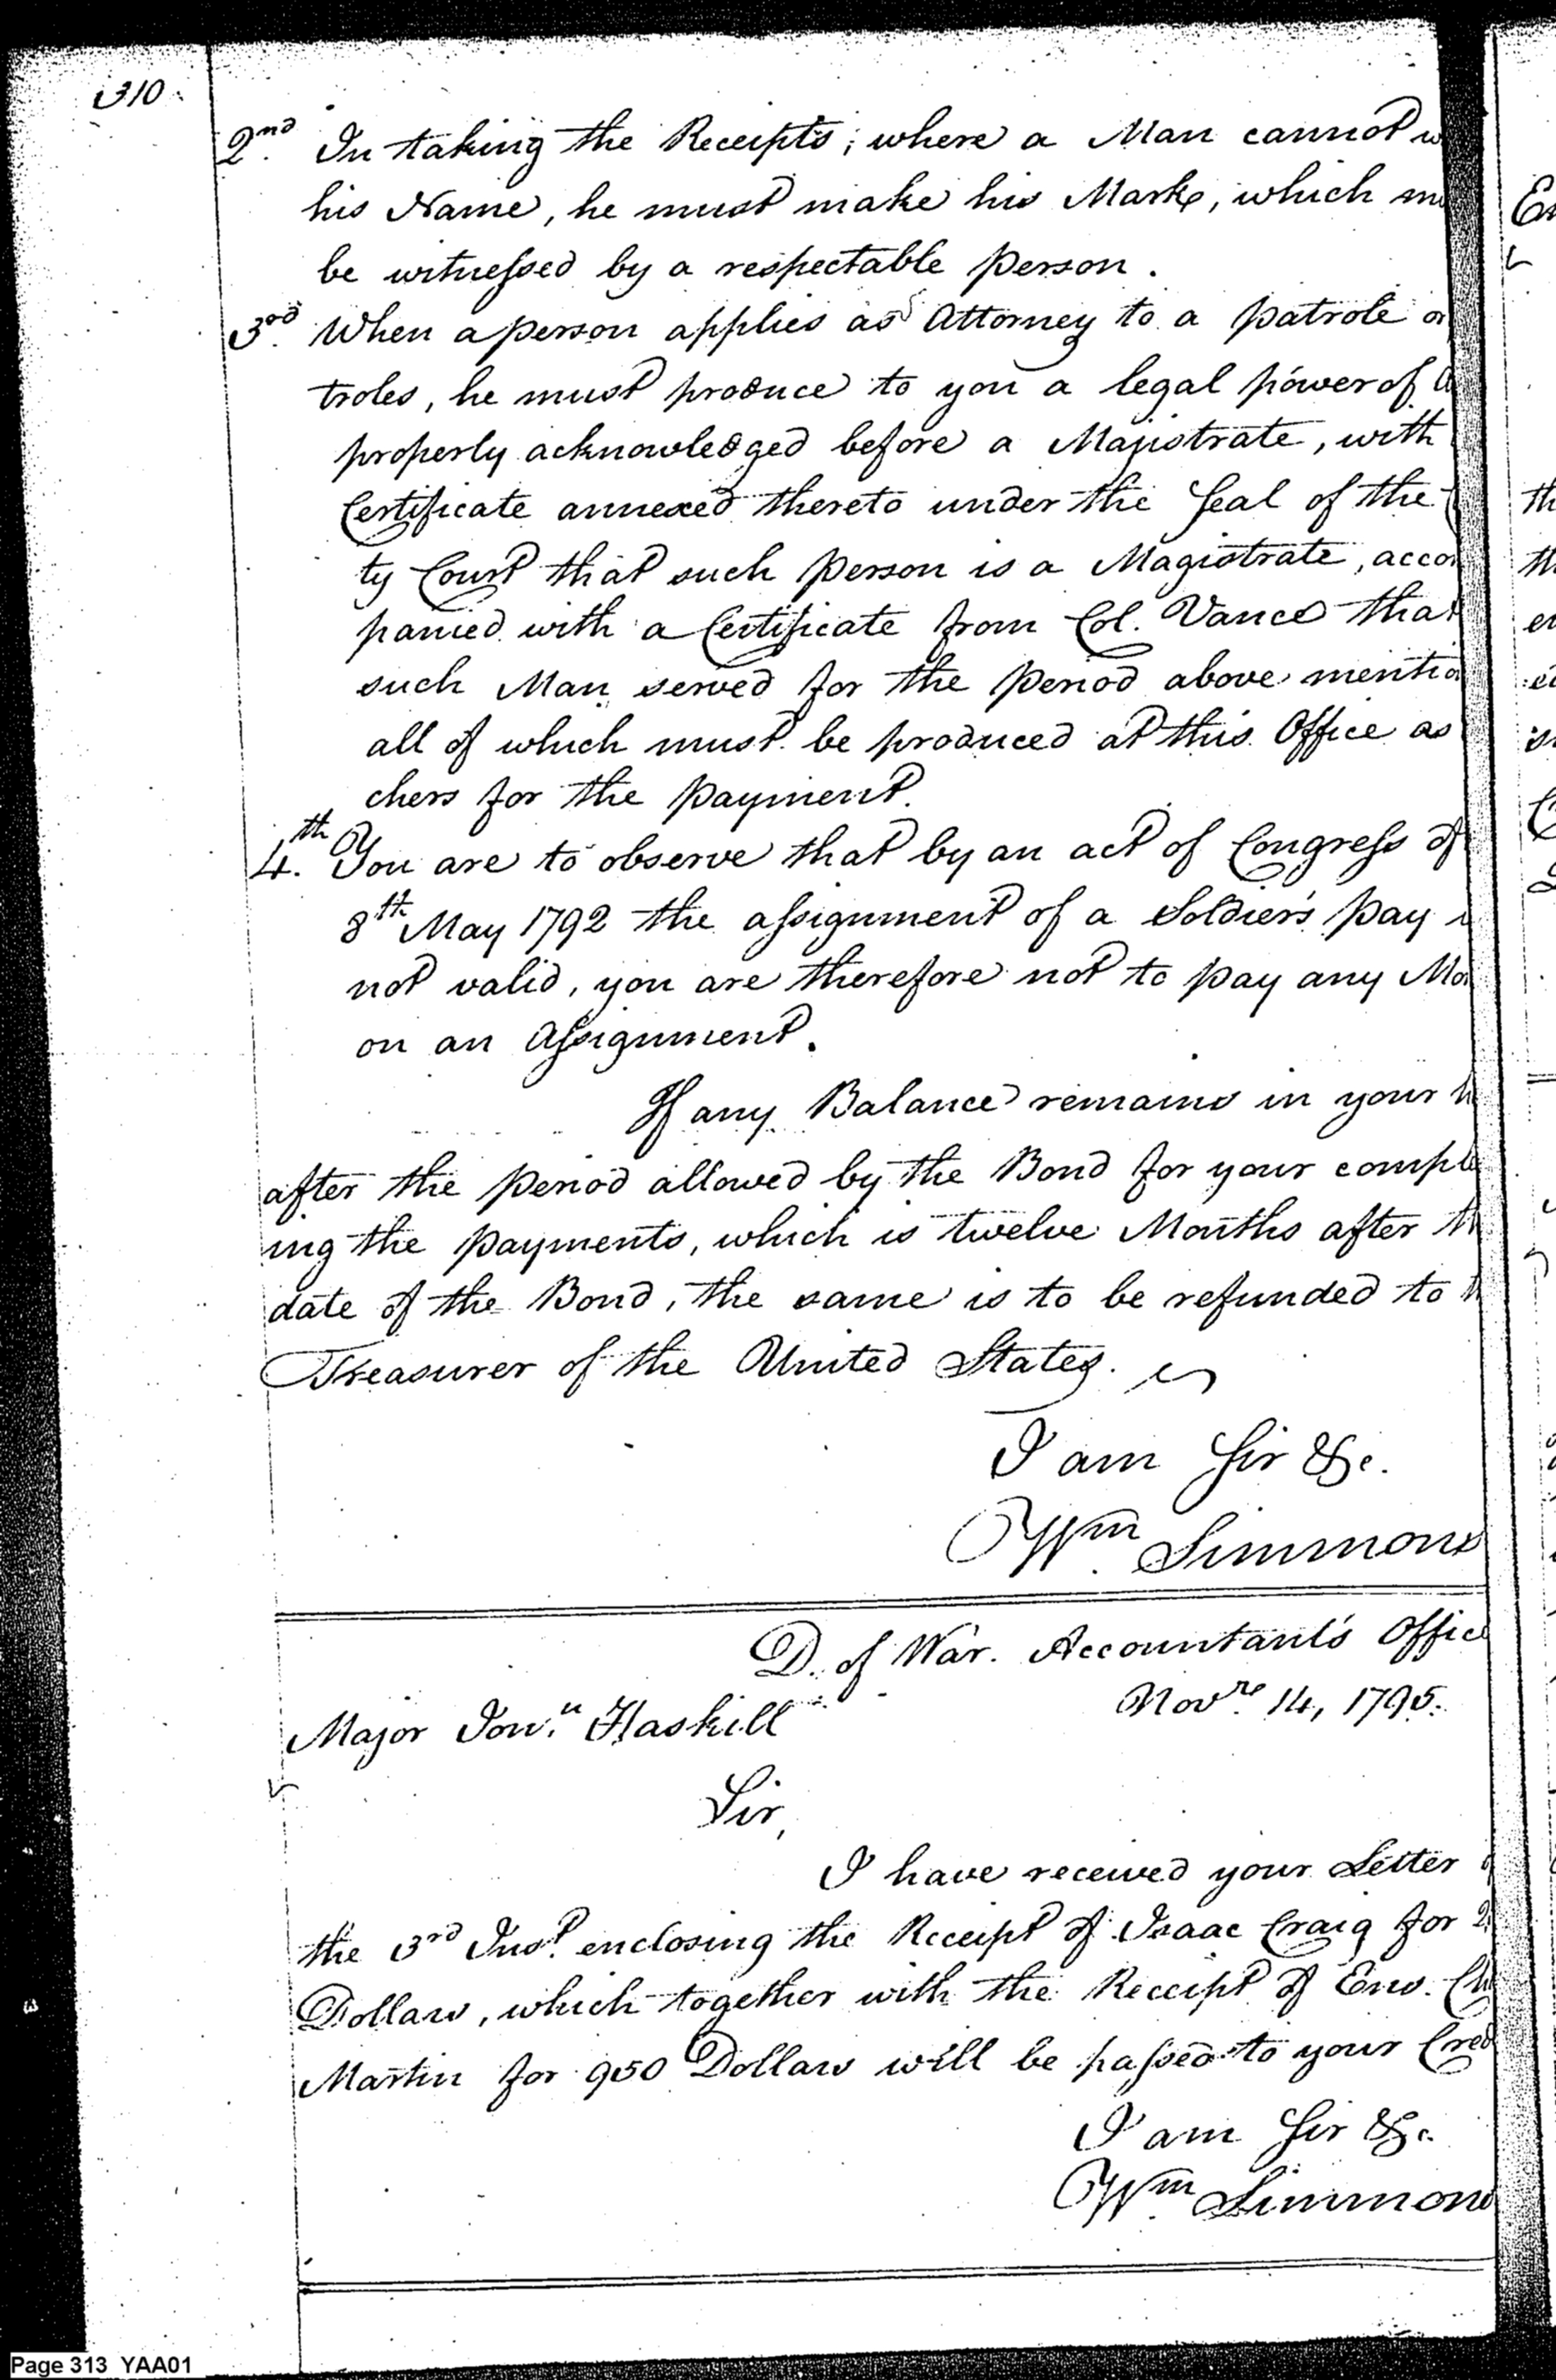 310
2nd. In taking the Receipts; where a Man cannot
his Name, he must make his Mark, which
be witnessed by a respectable person.
3rd. When a person applies as Attorney to a patrole or
troles, he must produce to you a legal power of
properly acknowledged before a Majistrate, with
Certificate annexed thereto under the Seal of the
ty Court that such person is a Magistrate, accom
panied with a Certificate from Col. Vance that
such Man served for the period above mentio
all of which must be produced at this Office as
chers for the payment.
4th. You are to observe that by an act of Congress of
8th May 1792 the assignment of a Soldier's pay
not valid, you are therefore not to pay any Mon
on an Assignment.
If any Balance remains in your
after the period allowed by the Bond for your comple
ing the payments, which is twelve Months after th
date of the Bond, the same is to be refunded to
Treasurer of the United States.
I am Sir &c.
Wm. Simmons
D. of War. Accountant's Office
Novre. 14, 1795.
Major Jona. Haskill
Sir,
I have received your Letter
the 3rd Inst. enclosing the Receipt of Isaac Craig for
Dollars, which together with the Receipt of Ens.
Martin for 950 Dollars will be passed to your Cred
I am Sir &c.
Wm. Simmons
Page 313 YAA01